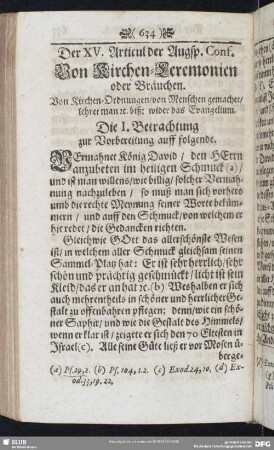 634
Der XV. Articul der Augsp. Conf.
Von Kirchen-Ceremonien
oder Bräuchen.
Von Kirchen-Ordnungen/von Menschen gemachet/
lehret man ꝛc. biß: wider das Evangelium.
Die I. Betrachtung
zur Vorbereitung auff folgende.
Ermahnet König David / den HErrn
anzubeten im heiligen Schmuck (a)/
und ist man willens/wie billig/ solcher Vermah-
nung nachzuleben / so muß man sich vorhero
umb die rechte Meynung seiner Worte beküm-
mern / und auff den Schmuck/von welchem er
hit redet / die Gedancken richten.
Gleichwie GOtt das allerschönste Wesen
ist/ in welchem aller Schmuck gleichsam seinen
Sammel-Platz hat: Er ist sehr herrlich/sehr
schön und prächtig geschmückt/ licht ist sein
Kleid/das er an hat ꝛc. (b) Weshalben er sich
auch mehrentheils in schöner und herrlicher Ge-
stalt zu offenbahren pflegen; denn/wie ein schö-
ner Saphir/ und wie die Gestalt des Himmels/
wenn er klar ist / zeigete er sich den 70 Eltesten in
Israel(c). Alle seine Güte ließ er vor Mosen ü-
berge-
(a) Ps.29,2. (b) Ps. 104, 1.2. (c) Exod.24,10. (d) Ex-
od.33,19.22.
SLUB
DFG